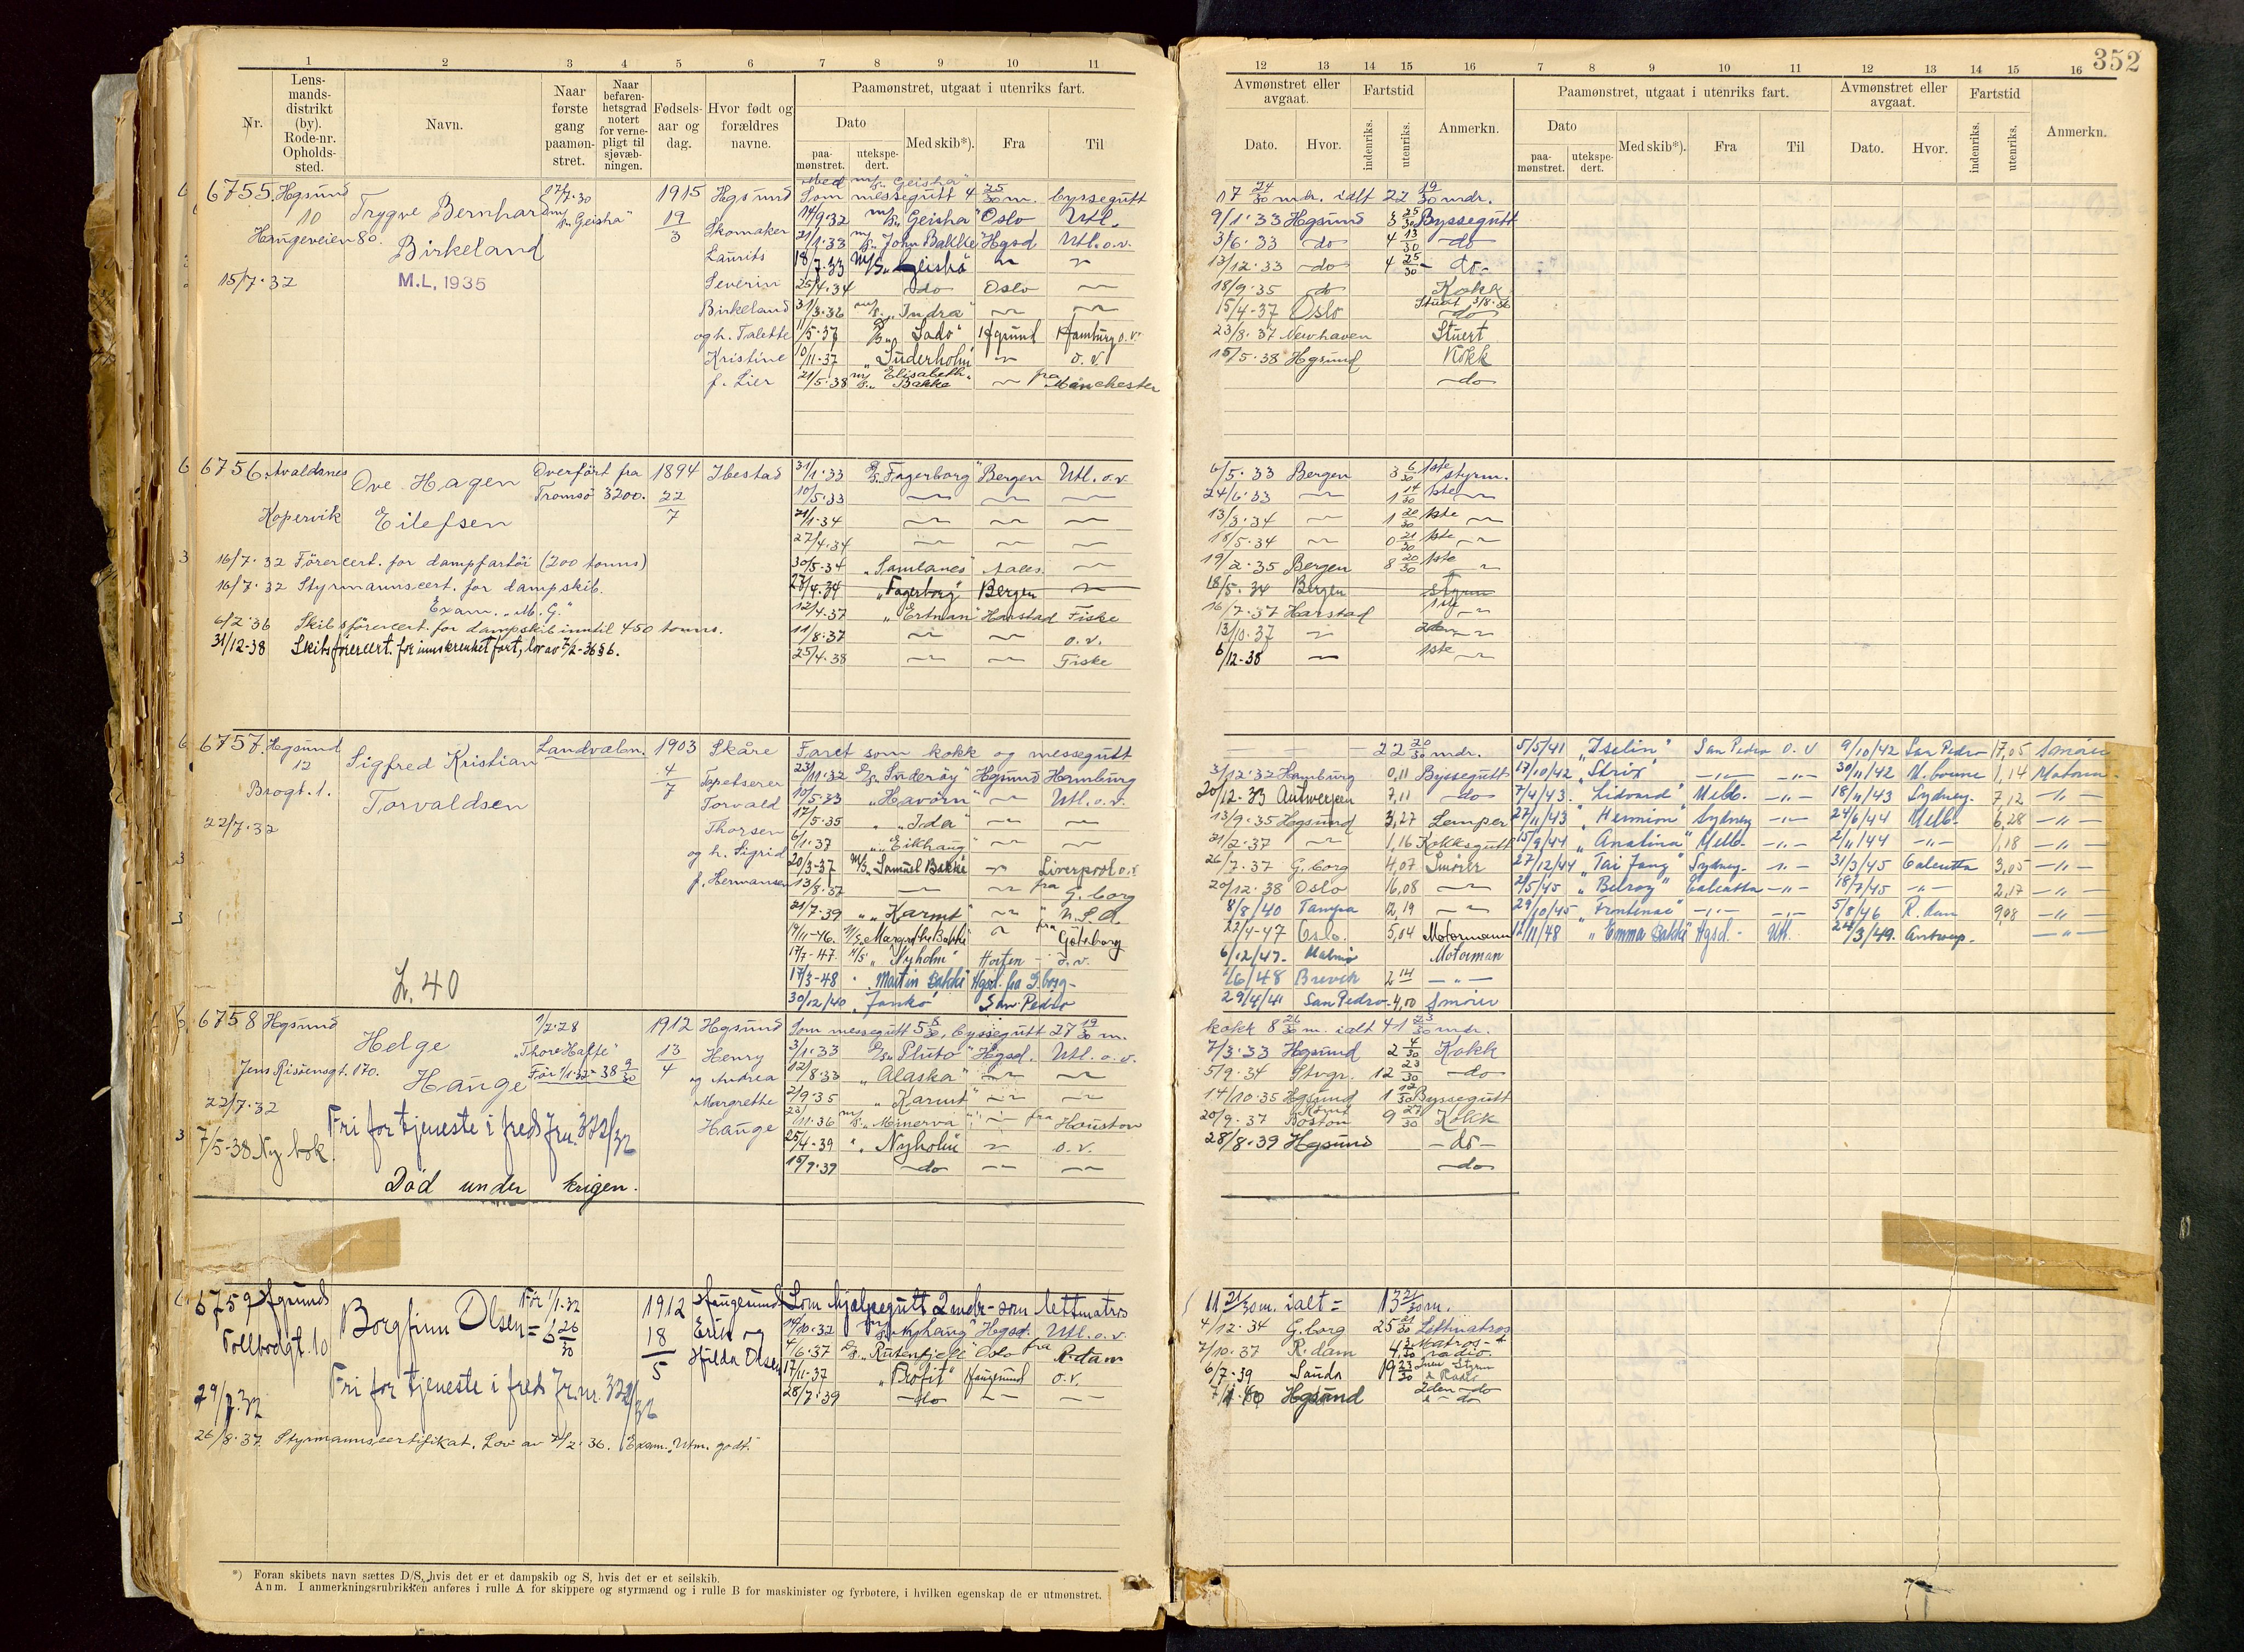 352
1 2 3 4 5 6 7 8 9 10 11
Nr.
Lens-
mands-
distrikt
(by).
Rode-nr.
Opholds-
sted.
Navn.
Naar
første
gang
paamøn-
stret.
Naar
befaren-
hetsgrad
notert
for verne-
pligt til
sjøvæb-
ningen.
Fødsels-
aar og
dag.
Hvor født og
forældres
navne.
Paamønstret, utgaat i utenriks fart.
Dato
paa-
mønstret.
utekspe-
dert.
Med skib*).
Fra
Til
12 13 14 15 16 7 8 9 10 11 12 13 14 15 16
Avmønstret eller
avgaat.
Dato.
Hvor.
Fartstid
indenriks.
utenriks.
Anmerkn.
Paamønstret, utgaat i utenriks fart.
Dato
paa-
mønstret.
utekspe-
dert.
Med skib*).
Fra
Til
Avmønstret eller
avgaat.
Dato.
Hvor.
Fartstid
indenriks.
utenriks.
Anmerkn.
6755 Hgsund
10
Haugeveien 80.
15/7.32
Trygve Bernhard
Birkeland
M.L, 1935
17/7.30
m/s "Geisha"
1915
19/3
Hgsund
Skomaker
Laurits
Severin
Birkeland
og h. Talette
Kristine
f. Lier
Med m/s "Geisha"
Som messegutt 4 25/30 m. byssegutt
14/9.32 m/s "Geisha" Oslo Utl.
21/1.33 m/s "John Bakke" Hgsd Utl. o.v.
18/7.33 M/S "Geisha" 〃 〃
25/4.34 do Oslo 〃
31/3.36 m/s "Indra" 〃 〃
11/5.37 D/S "Sado" Hgsund Hamburg o.v.
10/11.37 "Suderholm" 〃 o.v.
21/5.38 m/s "Elisabeth Bakke" 〃 fra Manchester
17 24/30 mdr. ialt 22 19/30 mdr.
9/1.33 Hgsund 3 25/30 Byssegutt
3/6.33 do 4 13/30 do
12/12.33 do 4 25/30 do
18/9.35 do Kokk
15/4-37 Oslo Stuert 3/8.36 do
23/8.37 Newhaven Stuert
15/5.38 Hgsund Kokk
do
6756 Avaldsnes
Kopervik
Ove Hagen
Eilefsen
Overført fra
Tromsö 3200.
1894
22/7
Ibestad
16/7.32 Förercert. for dampfartöi (200 tonns)
16/7.32 Styrmannscert. for dampskib.
Exam. "M. G."
6/2.36 Skibsförercert. for dampskib inntil 450 tonns.
31/12-38 Skibsförercert. for innskrenket fart, lov av 7/2-36 § 6.
31/1.33 D/S "Fagerborg" Bergen Utl. o.v.
10/5.33 〃 〃 〃
21/1.34 〃 〃 〃
27/4.34 〃 〃 〃
30/5.34 "Samlanes" Aales. 〃
27/4.34 "Fagerborg" Bergen 〃
12/4.37 "Ertnan" Harstad Fiske
11/8.37 〃 〃 o.v.
25/4.38 〃 〃 Fiske
6/5.33 Bergen 3 6/30 1ste styrm.
24/6.33 〃 1 14/30 1ste 〃
13/3.34 〃 1 20/30 1ste 〃
18/5.34 〃 0 21/30 1ste 〃
19/2.35 Bergen 8 20/30 1ste 〃
18/5.34 Bergen styrm
16/7.37 Harstad 1ste 〃
13/10.37 〃 2den 〃
6/12-38 〃 1ste 〃
6757. Hgsund
12
Brogt. 1.
22/7.32
Sigfred Kristian
Torvaldsen
L. 40
Landvæbn.
1903
4/7
Skåre
Tapetserer
Torvald
Thorsen
og h. Sigrid
f. Hermansen
Faret som kokk og messegutt
23/11.32 D/S "Suderöy" Hgsund Hamburg
10/5.33 "Havörn" 〃 Utl. o.v.
17/5.35 "Ida" 〃 〃
6/1.37 "Eikhaug" 〃 〃
20/3-37 M/S "Samuel Bakke" 〃 Liverpool o.v.
13/8.37 〃 〃 fra G. borg
21/7.39 "Karmt" 〃 U.S.A.
19/11-46. M/S "Margrethe Bakke" 〃 fra Göteborg
19/7-47. M/S "Nyholm" Horten - o.v.
17/3-48 "Martin Bakke" Hgsd. fra G.borg-
30/12/40 "Janko" San Pedro
22 20/30 mdr.
3/12.32 Hamburg 0,11 Byssegutt
20/12.33 Antwerpen 7,11 do
13/9.35 Hgsund 3,27 Lemper
21/2.37 〃 1,16 Kokksgutt
26/7.37 G. borg 4,07 Smörer
20/12.38 Oslo 16,08 〃
8/8/40 Tampa 12,19 〃
22/4-47 Oslo. 5,04 Motormann
6/12/47. Malmö Motorman
2/6/48 Brevik 2 14 - " -
29/4/41 San Pedro 4,00 Smörer
5/5/41 "Iselin" San Pedro o.v 9/10/42 San Pedro 17,05 Smörer
17/10/42 "Strix" -"- -"- 30/11/42 M.bourne 1,14 Matorm
7/4/43. "Lidvard" Melb. -"- 18/11/43 Sydney. 7,12 -"-
27/11/43 "Hermion" Sydney -"- 24/6/44 Melb. 6,28 -"-
15/9/44 "Analina" Melb- -"- 2/11/44 -"- 1,18 -"-
27/12/44 "Tai Jang" Sydney. -"- 31/3/45 Calcutta 3,05 -"-
2/5/45 "Belray" Calcutta -"- 18/7/45 -"- 2,17 -"-
29/10/45 "Frontenac" -"- -"- 5/8/46 R. dam 9,08 -"-
12/11/48 "Emma Bakke" Hgsd. - Utl. 24/3/49. Antwerp. -"-
6758 Hgsund
Jens Risöensgt. 170.
22/7.32
7/5-38 Ny bok.
Helge
Hauge
1/7.28
"Thore Hafte"
Før 1/1.32 = 38 9/30
Fri for tjeneste i fred Jnr. 372/32
Död under krigen.
1912
13/4
Hgsund
Henry
og Andrea
Margrethe
Hauge
Som messegutt 5 8/30, byssegutt 27 19/30 m.
3/1.33 D/S "Pluto" Hgsd. Utl. o.v.
12/8.33 "Alaska" 〃 〃
2/9.35 "Karmt" 〃 〃
23/11.36 m/s "Minerva" 〃 fra Houston
25/4-39 "Nyholm" 〃 o.v.
15/9.39 do 〃 〃
kokk 8 26/30 m. ialt 41 23/30 mdr.
7/3.33 Hgsund 2 4/30 Kokk
5/9.34 Stvgr. 12 23/30 do
14/10.35 Hgsund 1 12/30 Byssegutt
20/9.37 Boston 9 27/30 Kokk
28/8.39 Hgsund - do -
do
6759 Hgsund
Tollbodgt. 10
29/7.32
Borgfinn Olsen
Før 1/1.32
= 6 26/30
Fri for tjeneste i fred Jr.nr. 322/36
26/8.37 Styrmannscertifikat. Lov av 7/2.36. Exam. "Utm. godt."
1912
18/5
Haugesund
Erik og
Hilda Olsen
Som hjelpegutt 2 mdr - som lettmatros
14/10.32 M/S "Nyhaug" Hgsd. Utl. o.v.
4/6.37 D/S "Rutenfjell" Oslo fra R.dam
17/11-37 "Profit" Haugesund o.v.
28/7.39 do 〃 〃
11 21/30 m. ialt = 13 21/30 m.
4/12.34 G. borg 25 21/30 Lettmatros
7/10.37 R. dam 4 3/30 Matros- + radio.
6/7.39 Sauda 19 23/30 2nen Styrm & Radio
7/1.40 Hgsund 2den do
*) Foran skibets navn sættes D/S, hvis det er et dampskib og S, hvis det er et seilskib.
Anm. I anmerkningsrubrikken anføres i rulle A for skippere og styrmænd og i rulle B for maskinister og fyrbøtere, i hvilken egenskap de er utmønstret.